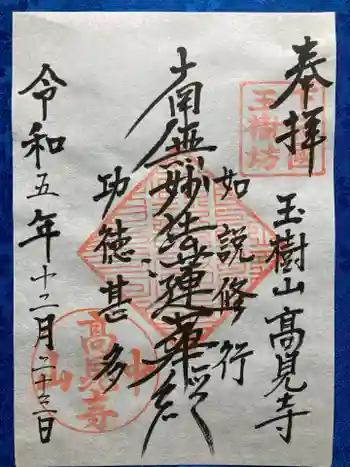 奉拝
玉樹山高見寺
如説修行
南無妙法蓮華経
功徳甚多
令和五年十二月二十三日
玉樹坊
高見寺